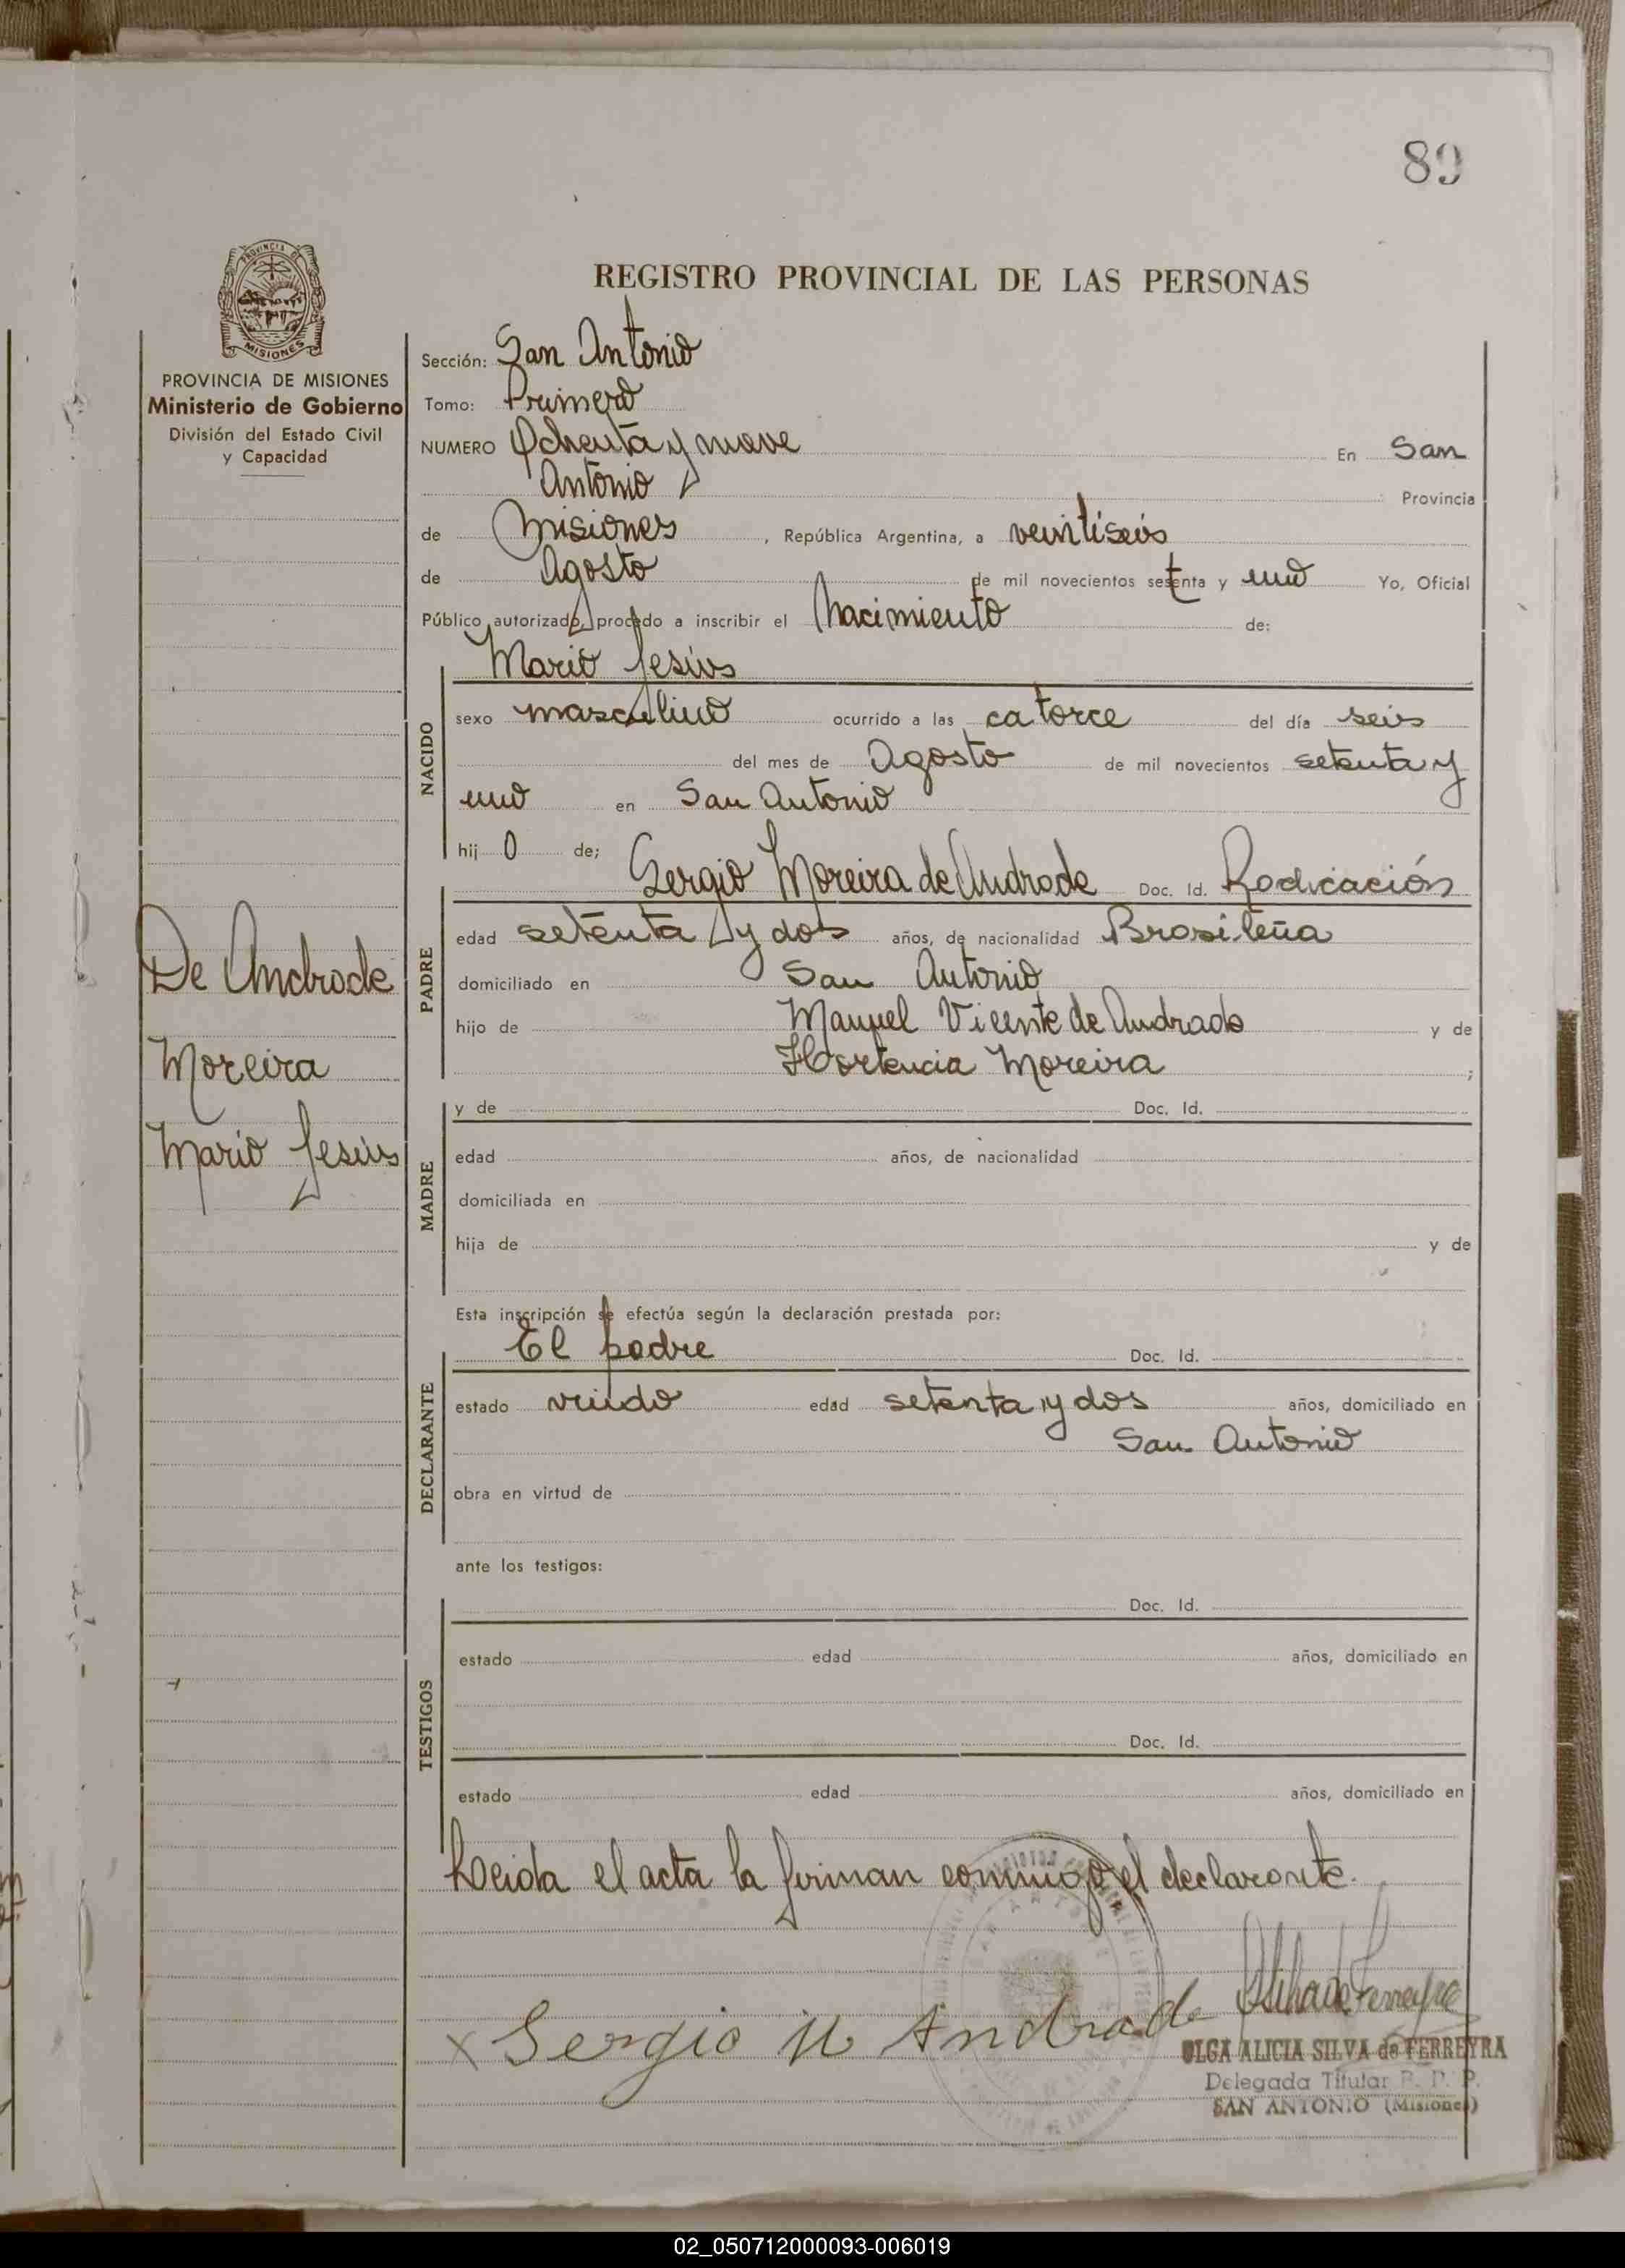 89
REGISTRO PROVINCIAL DE LAS PERSONAS
PROVINCIA DE
MISIONES
PROVINCIA DE MISIONES
Ministerio de Gobierno
División del Estado Civil
y Capacidad
De Andrade
Moreira
Mario Jesús
Sección: San Antonio
Tomo: Primero
NUMERO Ochenta y nueve En San
Antonio Provincia
de Misiones , República Argentina, a veintiseis
de Agosto de mil novecientos setenta y uno Yo, Oficial
Público autorizado, procedo a inscribir el Nacimiento de:
Mario Jesús
NACIDO
sexo masculino ocurrido a las catorce del día seis
del mes de Agosto de mil novecientos setenta y
uno en San Antonio
hij o de;
Sergio Moreira de Andrade Doc. Id. Radicación
PADRE
edad setenta y dos años, de nacionalidad Brasileña
domiciliado en San Antonio
hijo de Manuel Vicente de Andrade y de
Hortencia Moreira ;
MADRE
y de Doc. Id.
edad años, de nacionalidad
domiciliada en
hija de y de
Esta inscripción se efectúa según la declaración prestada por:
El padre Doc. Id.
DECLARANTE
estado viudo edad setenta y dos años, domiciliado en
San Antonio
obra en virtud de
ante los testigos:
TESTIGOS
Doc. Id.
estado edad años, domiciliado en
Doc. Id.
estado edad años, domiciliado en
Leida el acta la firman conmigo el declarante.
x Sergio M Andrade
OLGA ALICIA SILVA de FERREYRA
Delegada Titular R. P. P.
SAN ANTONIO (Misiones)
02_050712000093-006019